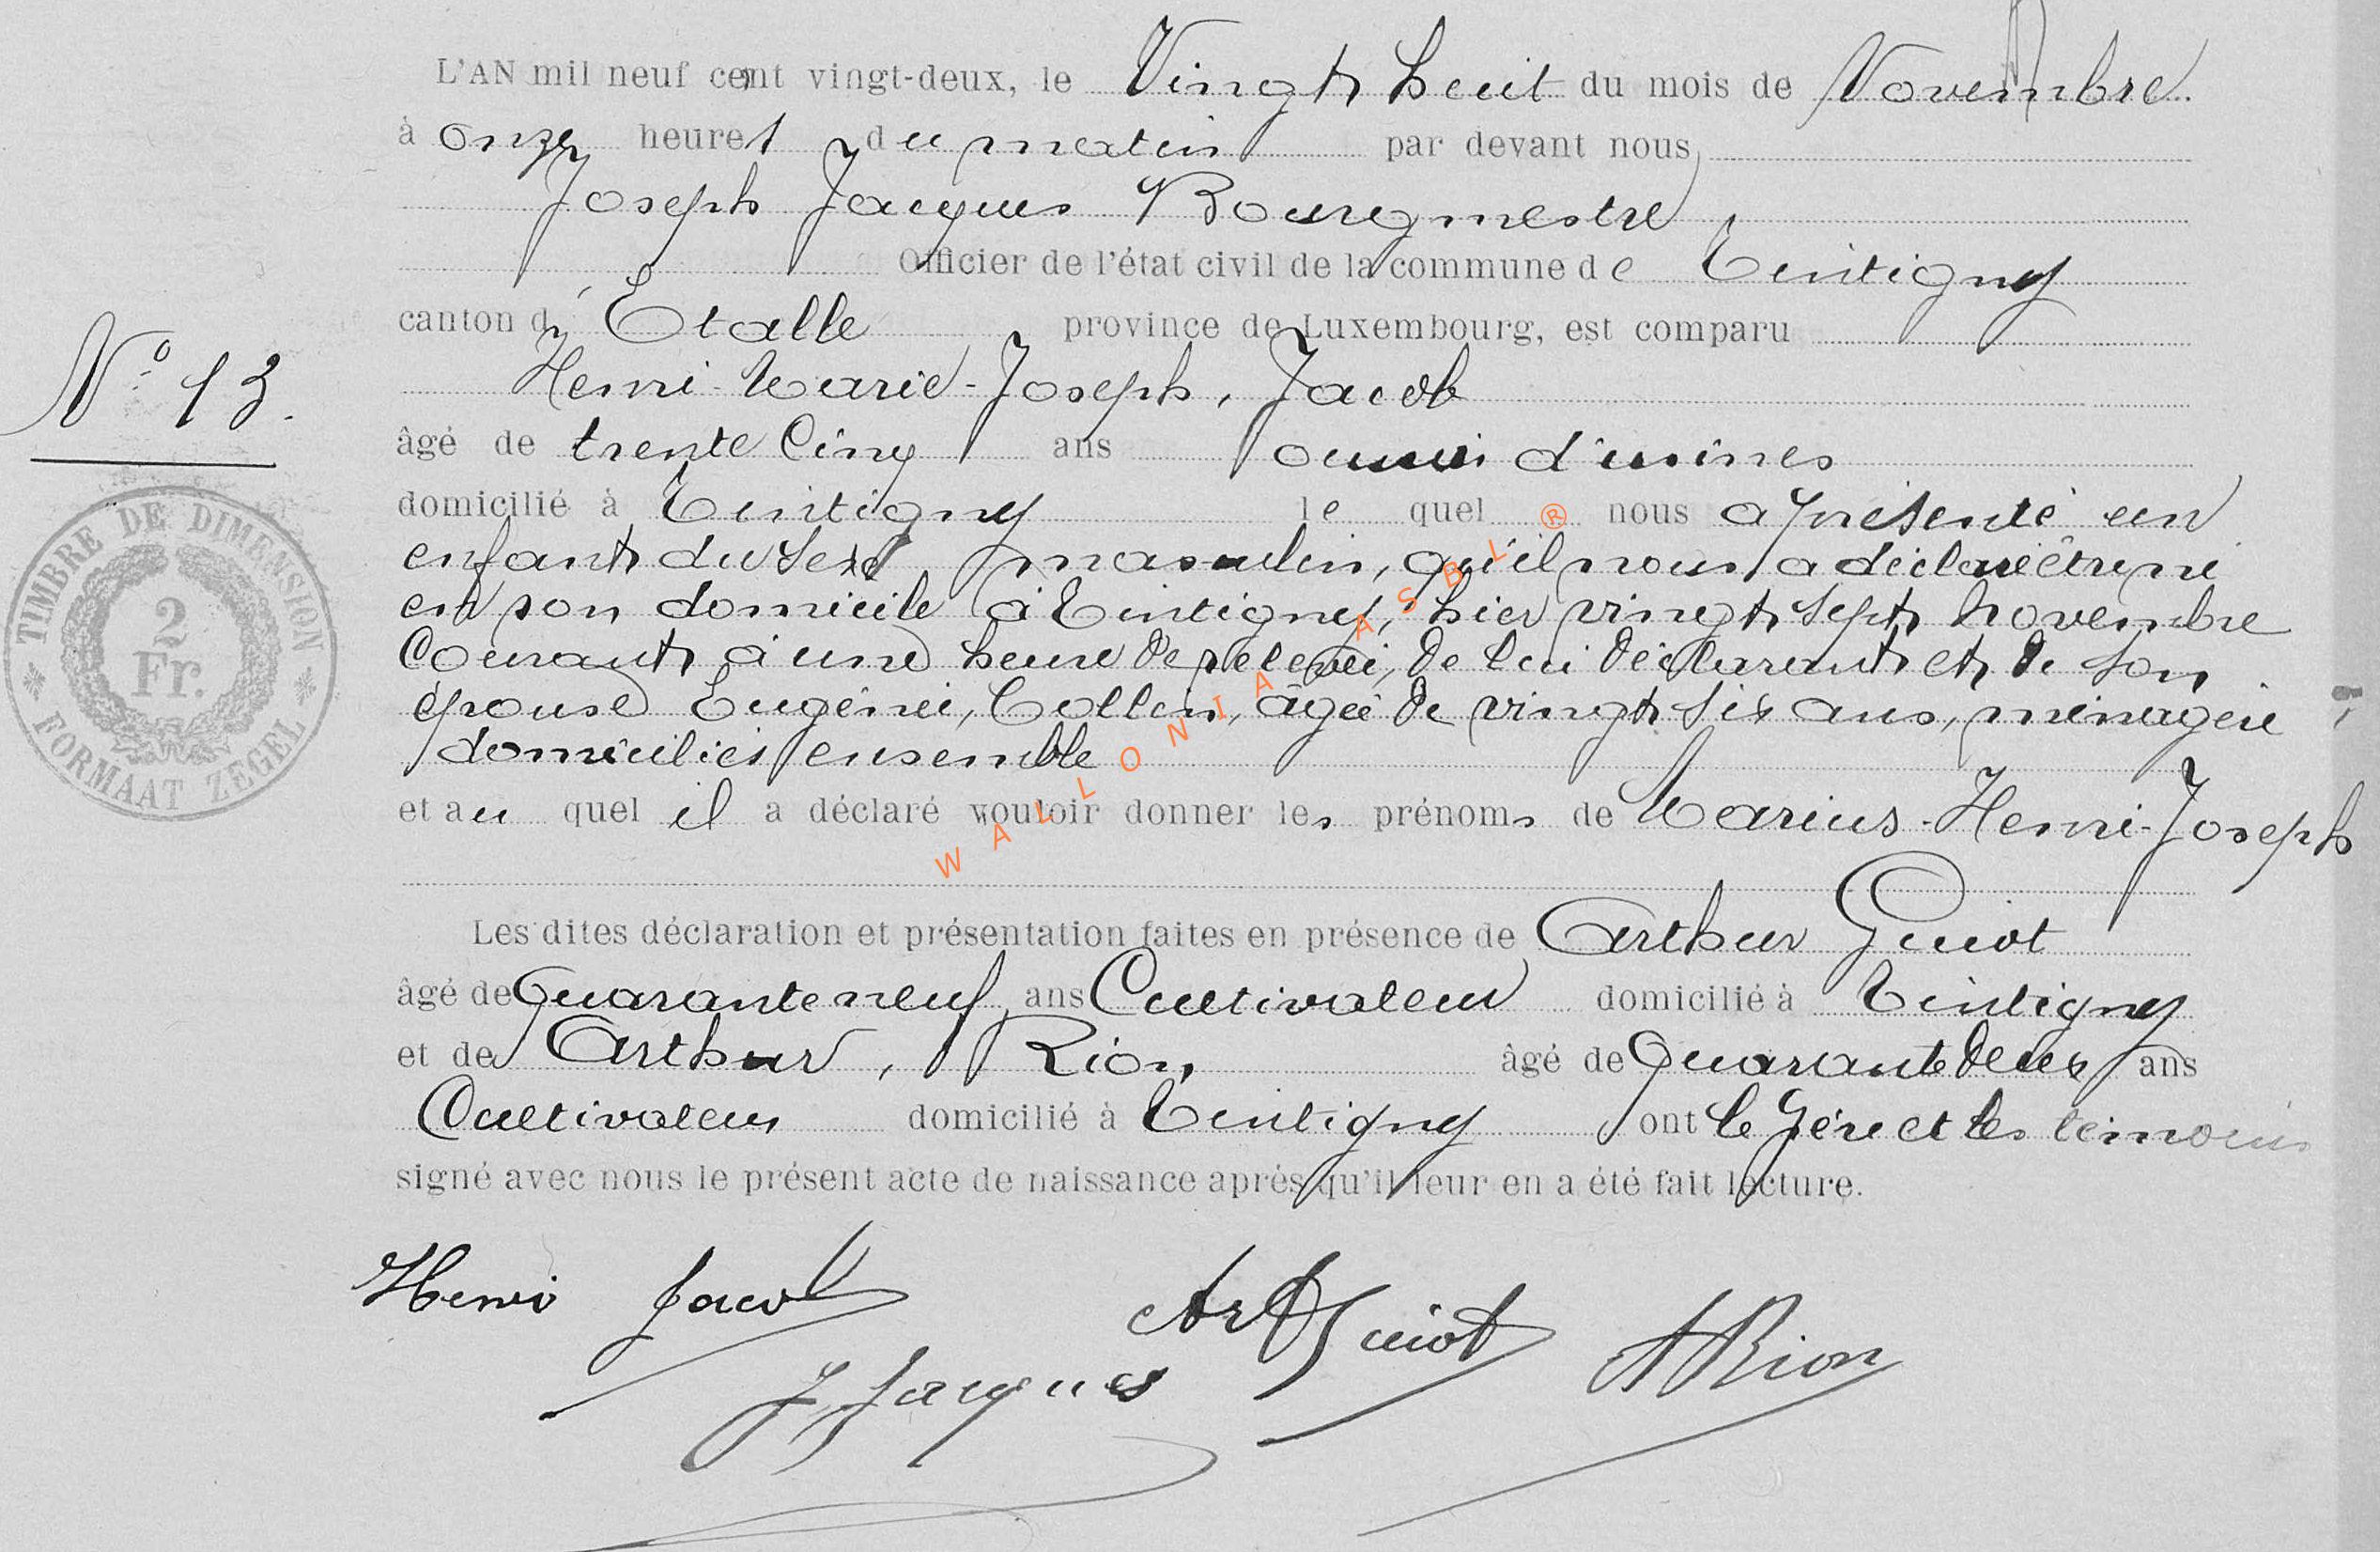 L'AN mil neuf cent vingt-deux, le Vingt huit du mois de Novembre
à onze heures du matin par devant nous,
Joseph Jacques Bourgmestre
Officier de l'état civil de la commune de Tintigny
canton d'Etalle province de Luxembourg, est comparu
Henri-Marie-Joseph, Jacob
N° 13.
âgé de trente Cinq ans ouvrier d'usines
domicilié à Tintigny le quel nous a présenté un
enfant du sexe masculin, qu'il nous a déclaré être né
en son domicile à Tintigny, hier vingt sept novembre
Courant à une heure de relevée, de lui déclarant et de son
épouse Eugénie, Collin, âgée de vingt six ans, ménagère
domiciliés ensemble
et au quel il a déclaré vouloir donner les prénoms de Marius-Henri-Joseph
Les dites déclaration et présentation faites en présence de Arthur Guiot
âgé de Quarante neuf ans Cultivateur domicilié à Tintigny
et de Arthur, Rion âgé de Quarante deux ans
Cultivateur domicilié à Tintigny ont le père et les témoins
signé avec nous le présent acte de naissance après qu'il leur en a été fait lecture.
Henri Jacob
Art Guiot
J Jacques
A Rion
TIMBRE DE DIMENSION
2
Fr.
FORMAAT ZEGEL
WALLONIA ASBL ®